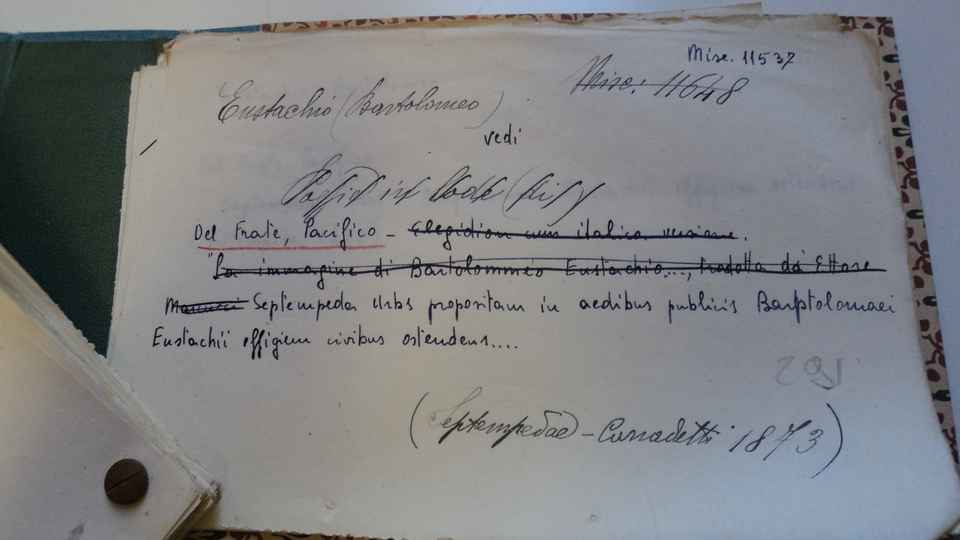 Misc. 11537
Misc. 11648
Eustachio (Bartolomeo)
vedi
Del Frate, Pacifico - Elegidion cum italica versione.
"La immagine di Bartolommeo Eustachio..., tradotta da Ettore
Septempeda Urbs propositam in aedibus publicis Barptolomaei
Eustachii effigiem civibus ostendens....
(Septempedae - Corradetti 1873)